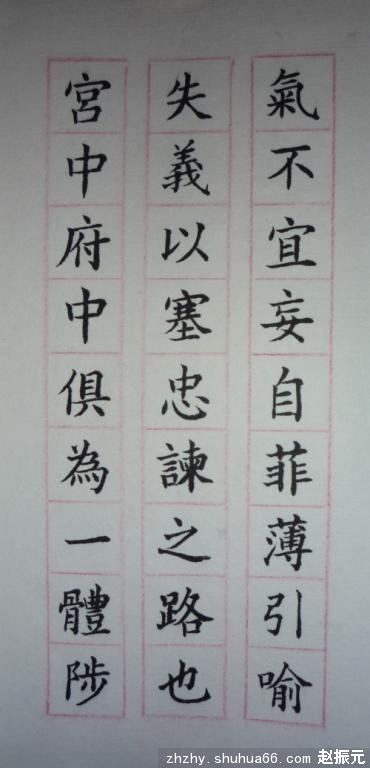 氣不宜妄自菲薄引喻
失義以塞忠諫之路也
宮中府中俱為一體陟
zhzhy.shuhua66.com 赵振元